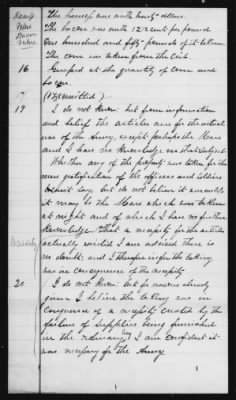 The harness was worth twenty dollars.
The bacon was worth 12 1/2 cents per pound.
One hundred and fifty pounds of it taken.
The corn was taken from the Crib.
16 Guessed at the quantity of corn and
bacon.
17 (Not permitted)
19 I do not know but from information
and belief the articles are for the actual
use of the Army, except perhaps the Mare
and I have no knowledge on that subject.
Whether any of the property was taken for the
mere gratification of the officers and soldiers
I cannot say but do not believe it
it may be the Mare which was taken
at night and of which I have no further
knowledge. That a necessity for the articles
actually existed I am advised there is
no doubt: and I therefore infer the taking
was in consequence of the necessity.
20 I do not know: but for reasons already
given I believe the taking was in
consequence of a necessity created by the
failure of supplies being furnished
in the ordinary way I am confident it
was necessary for the Army